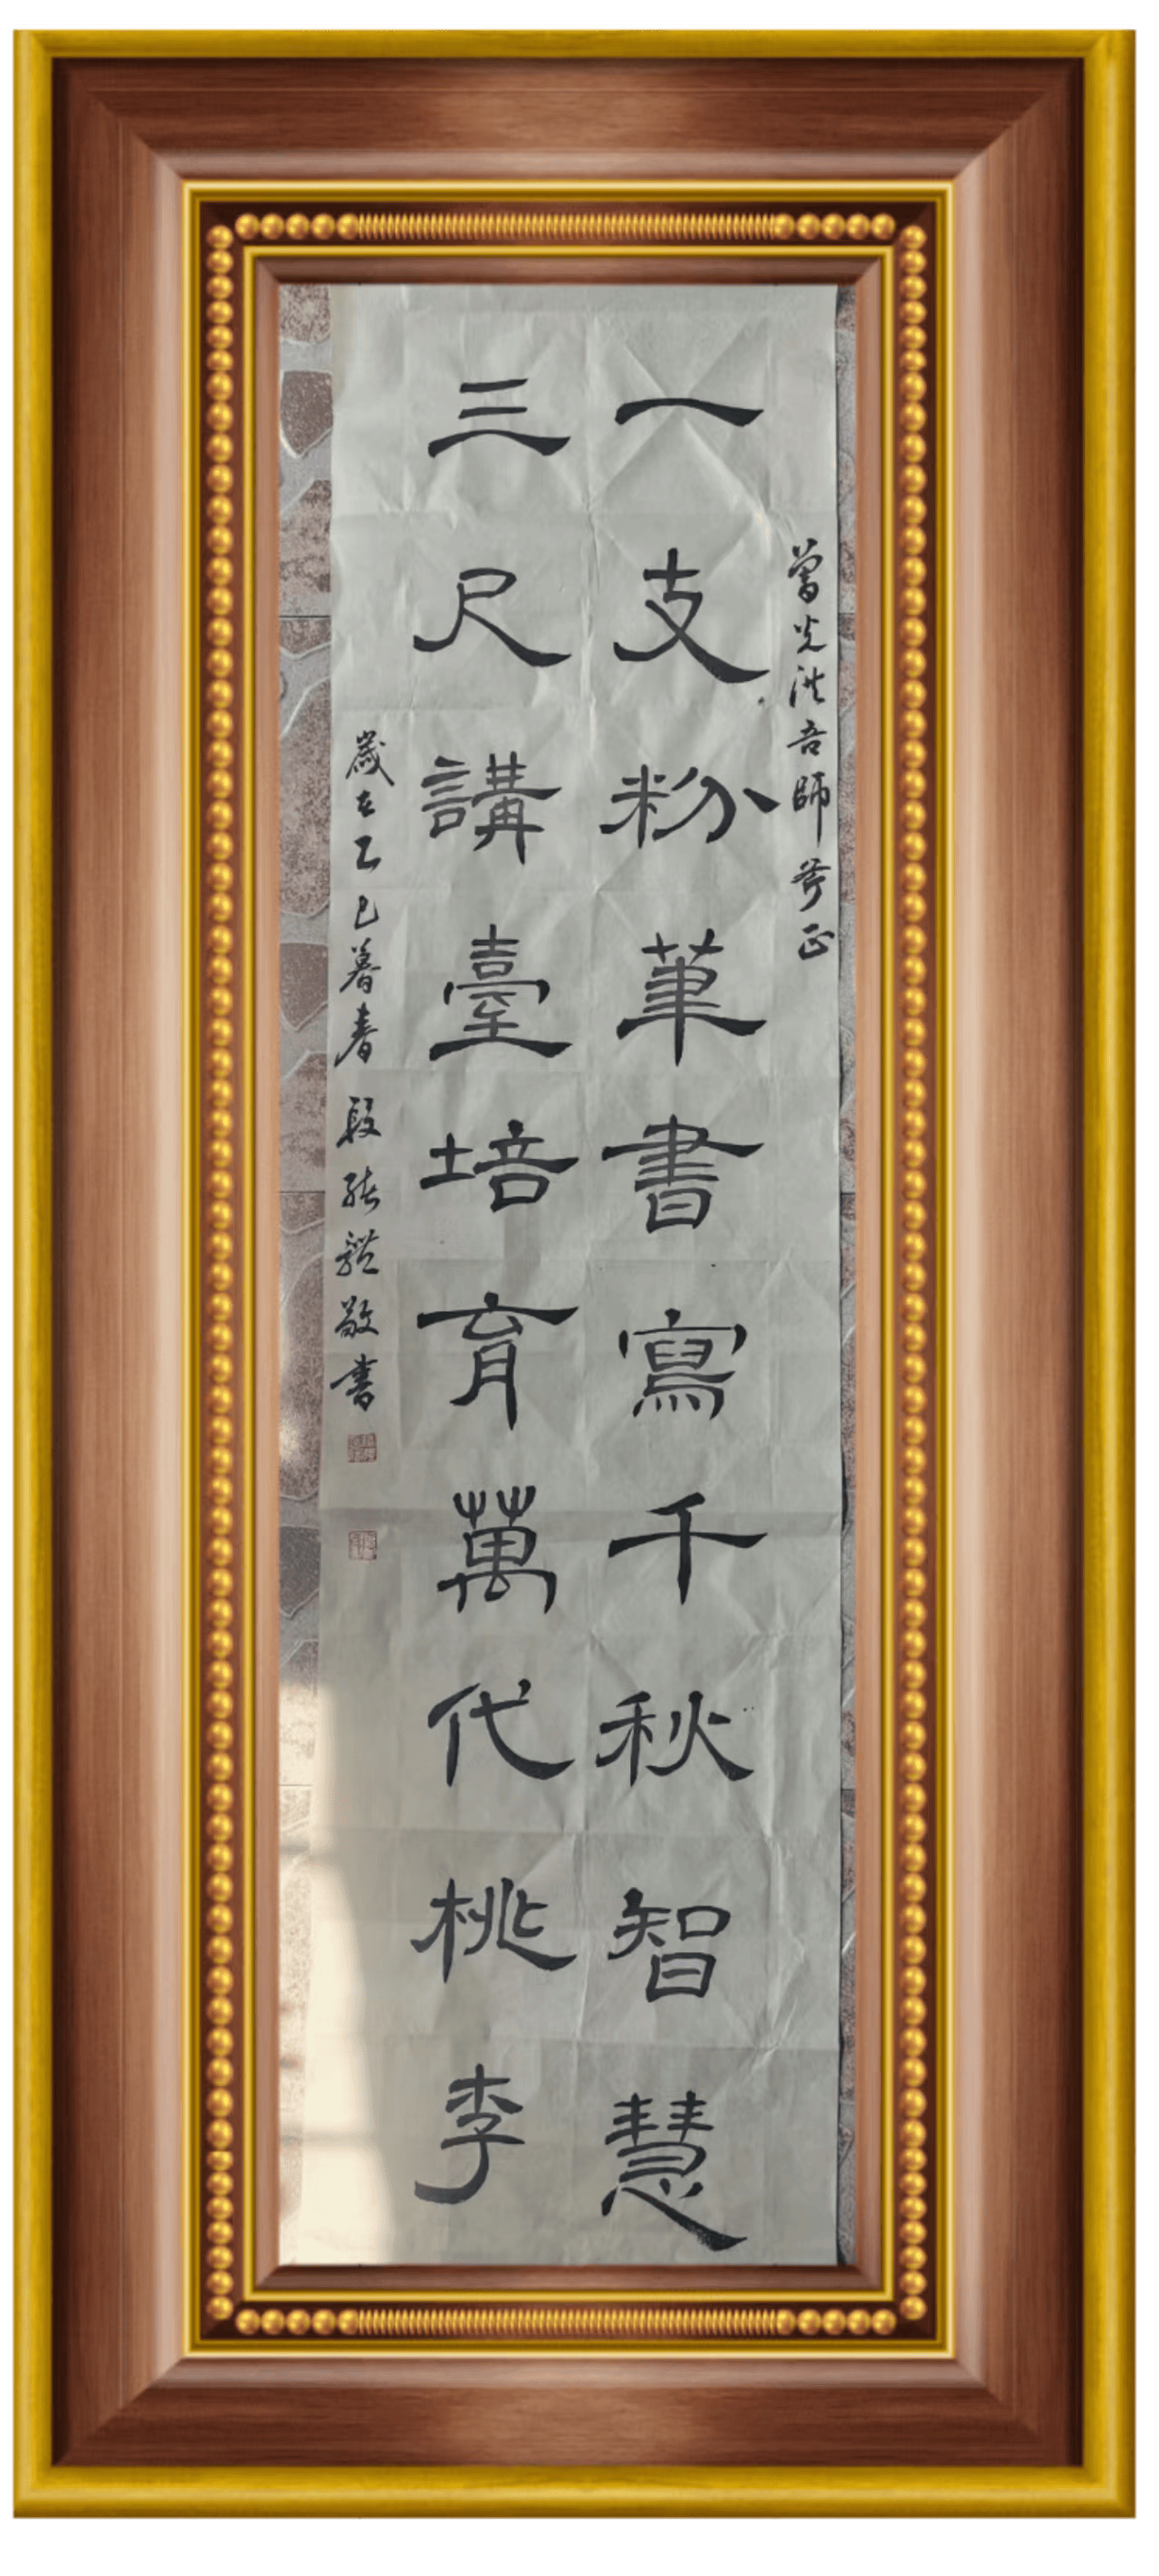 曾光洪吾師斧正
一支粉筆書寫千秋智慧
三尺講臺培育萬代桃李
歲在乙巳暮春 段 敬書